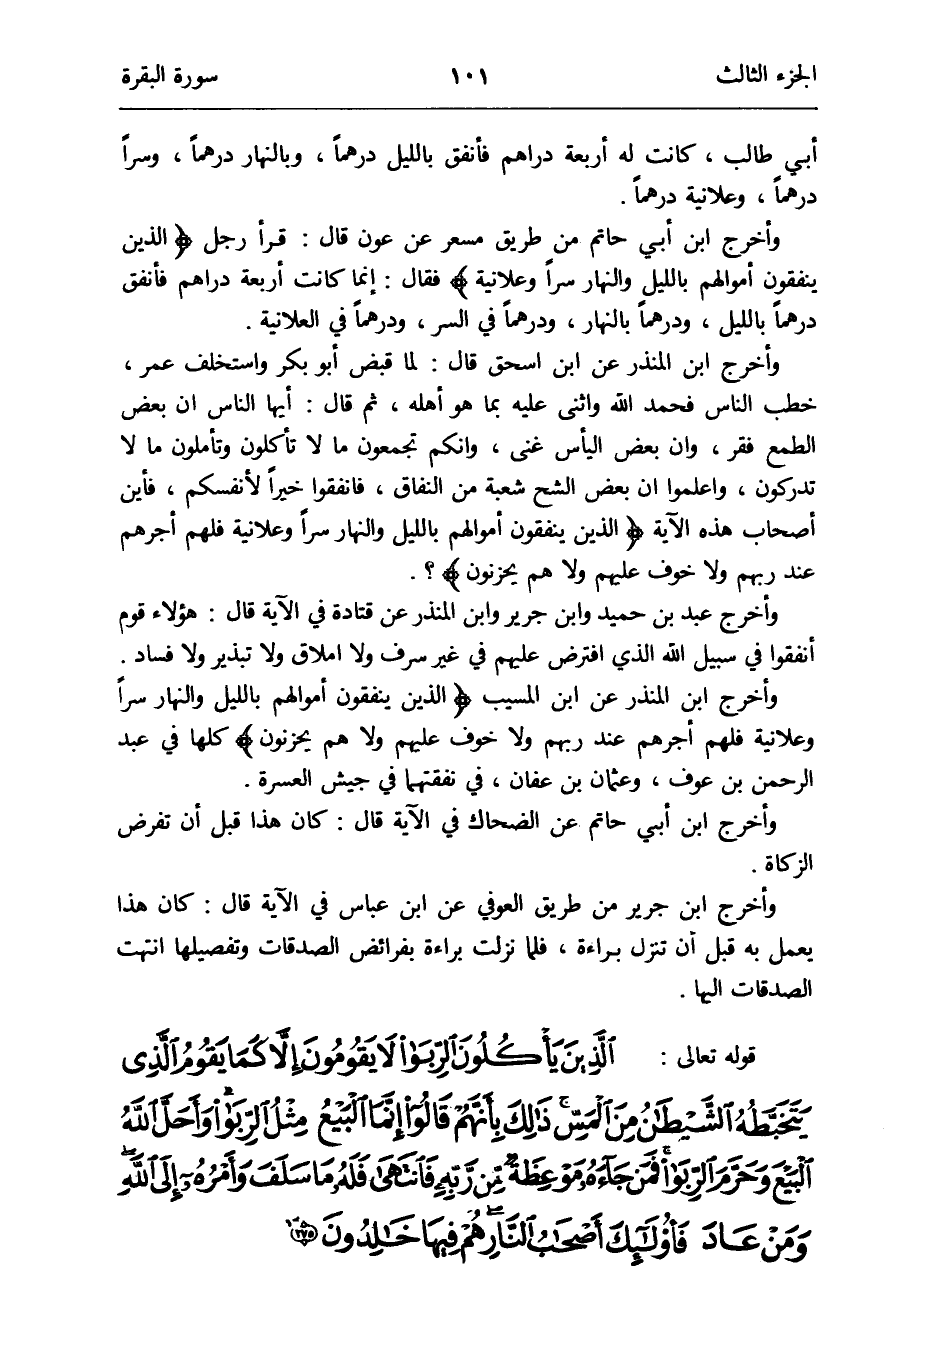 الجزء الثالث ١٠١ سورة البقرة
أبي طالب ، كانت له أربعة دراهم فأنفق بالليل درهماً ، وبالنهار درهماً ، وسراً
درهماً ، وعلانية درهماً .
وأخرج ابن أبي حاتم من طريق مسعر عن عون قال : قرأ رجل ﴿ الذين
ينفقون أموالهم بالليل والنهار سراً وعلانية ﴾ فقال : إنما كانت أربعة دراهم فأنفق
درهماً بالليل ، ودرهماً بالنهار ، ودرهماً في السر ، ودرهماً في العلانية .
وأخرج ابن المنذر عن ابن اسحق قال : لما قبض أبو بكر واستخلف عمر ،
خطب الناس فحمد الله واثنى عليه بما هو أهله ، ثم قال : أيها الناس ان بعض
الطمع فقر ، وان بعض اليأس غنى ، وانكم تجمعون ما لا تأكلون وتأملون ما لا
تدركون ، واعلموا ان بعض الشح شعبة من النفاق ، فانفقوا خيراً لأنفسكم ، فأين
أصحاب هذه الآية ﴿ الذين ينفقون أموالهم بالليل والنهار سراً وعلانية فلهم أجرهم
عند ربهم ولا خوف عليهم ولا هم يحزنون ﴾ ؟ .
وأخرج عبد بن حميد وابن جرير وابن المنذر عن قتادة في الآية قال : هؤلاء قوم
أنفقوا في سبيل الله الذي افترض عليهم في غير سرف ولا املاق ولا تبذير ولا فساد .
وأخرج ابن المنذر عن ابن المسيب ﴿ الذين ينفقون أموالهم بالليل والنهار سراً
وعلانية فلهم أجرهم عند ربهم ولا خوف عليهم ولا هم يحزنون ﴾ كلها في عبد
الرحمن بن عوف ، وعثمان بن عفان ، في نفقتهما في جيش العسرة .
وأخرج ابن أبي حاتم عن الضحاك في الآية قال : كان هذا قبل أن تفرض
الزكاة .
وأخرج ابن جرير من طريق العوفي عن ابن عباس في الآية قال : كان هذا
يعمل به قبل أن تنزل براءة ، فلما نزلت براءة بفرائض الصدقات وتفصيلها انتهت
الصدقات اليها .
قوله تعالى : ٱلَّذِينَ يَأۡكُلُونَ ٱلرِّبَوٰاْ لَا يَقُومُونَ إِلَّا كَمَا يَقُومُ ٱلَّذِى
يَتَخَبَّطُهُ ٱلشَّيۡطَٰنُ مِنَ ٱلۡمَسِّۚ ذَٰلِكَ بِأَنَّهُمۡ قَالُوٓاْ إِنَّمَا ٱلۡبَيۡعُ مِثۡلُ ٱلرِّبَوٰاْۗ وَأَحَلَّ ٱللَّهُ
ٱلۡبَيۡعَ وَحَرَّمَ ٱلرِّبَوٰاْۚ فَمَن جَآءَهُۥ مَوۡعِظَةٌ مِّن رَّبِّهِۦ فَٱنتَهَىٰ فَلَهُۥ مَا سَلَفَ وَأَمۡرُهُۥٓ إِلَى ٱللَّهِۖ
وَمَنۡ عَادَ فَأُوْلَٰٓئِكَ أَصۡحَٰبُ ٱلنَّارِۖ هُمۡ فِيهَا خَٰلِدُونَ ٢٧٥